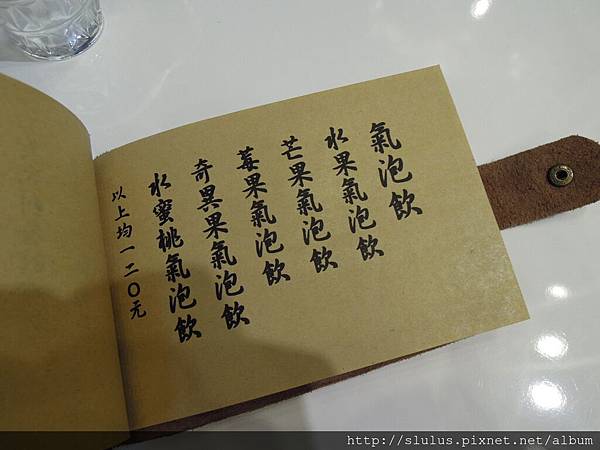 氣泡飲
水果氣泡飲
芒果氣泡飲
莓果氣泡飲
奇異果氣泡飲
水蜜桃氣泡飲
以上均一二〇元
http://slulus.pixnet.net/album